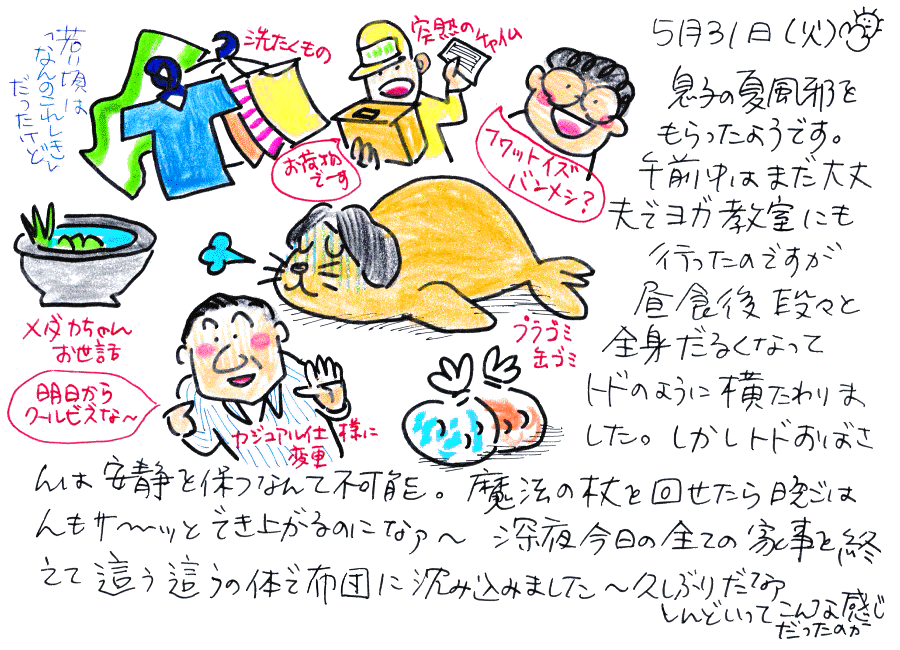 5月31日(火)
息子の夏風邪を
もらったようです。
午前中はまだ大丈
夫でヨガ教室にも
行ったのですが
昼食後段々と
全身だるくなって
トドのように横たわりま
した。しかしトドおばさ
んは安静を保つなんて不可能。魔法の杖を回せたら晩ごは
んもサ〜ッとでき上がるのになァ〜 深夜今日の全ての家事を終
えて這う這うの体で布団に沈み込みました〜久しぶりだなァ
しんどいってこんな感じ
だったのか
若い頃は
「なんのこれしき」
だったけど
洗たくもの
突然のチャイム
お荷物
です
フワットイズ
バンメシ?
メダカちゃん
お世話
プラゴミ
缶ゴミ
明日から
クールビズな〜
カジュアル仕様に
変更